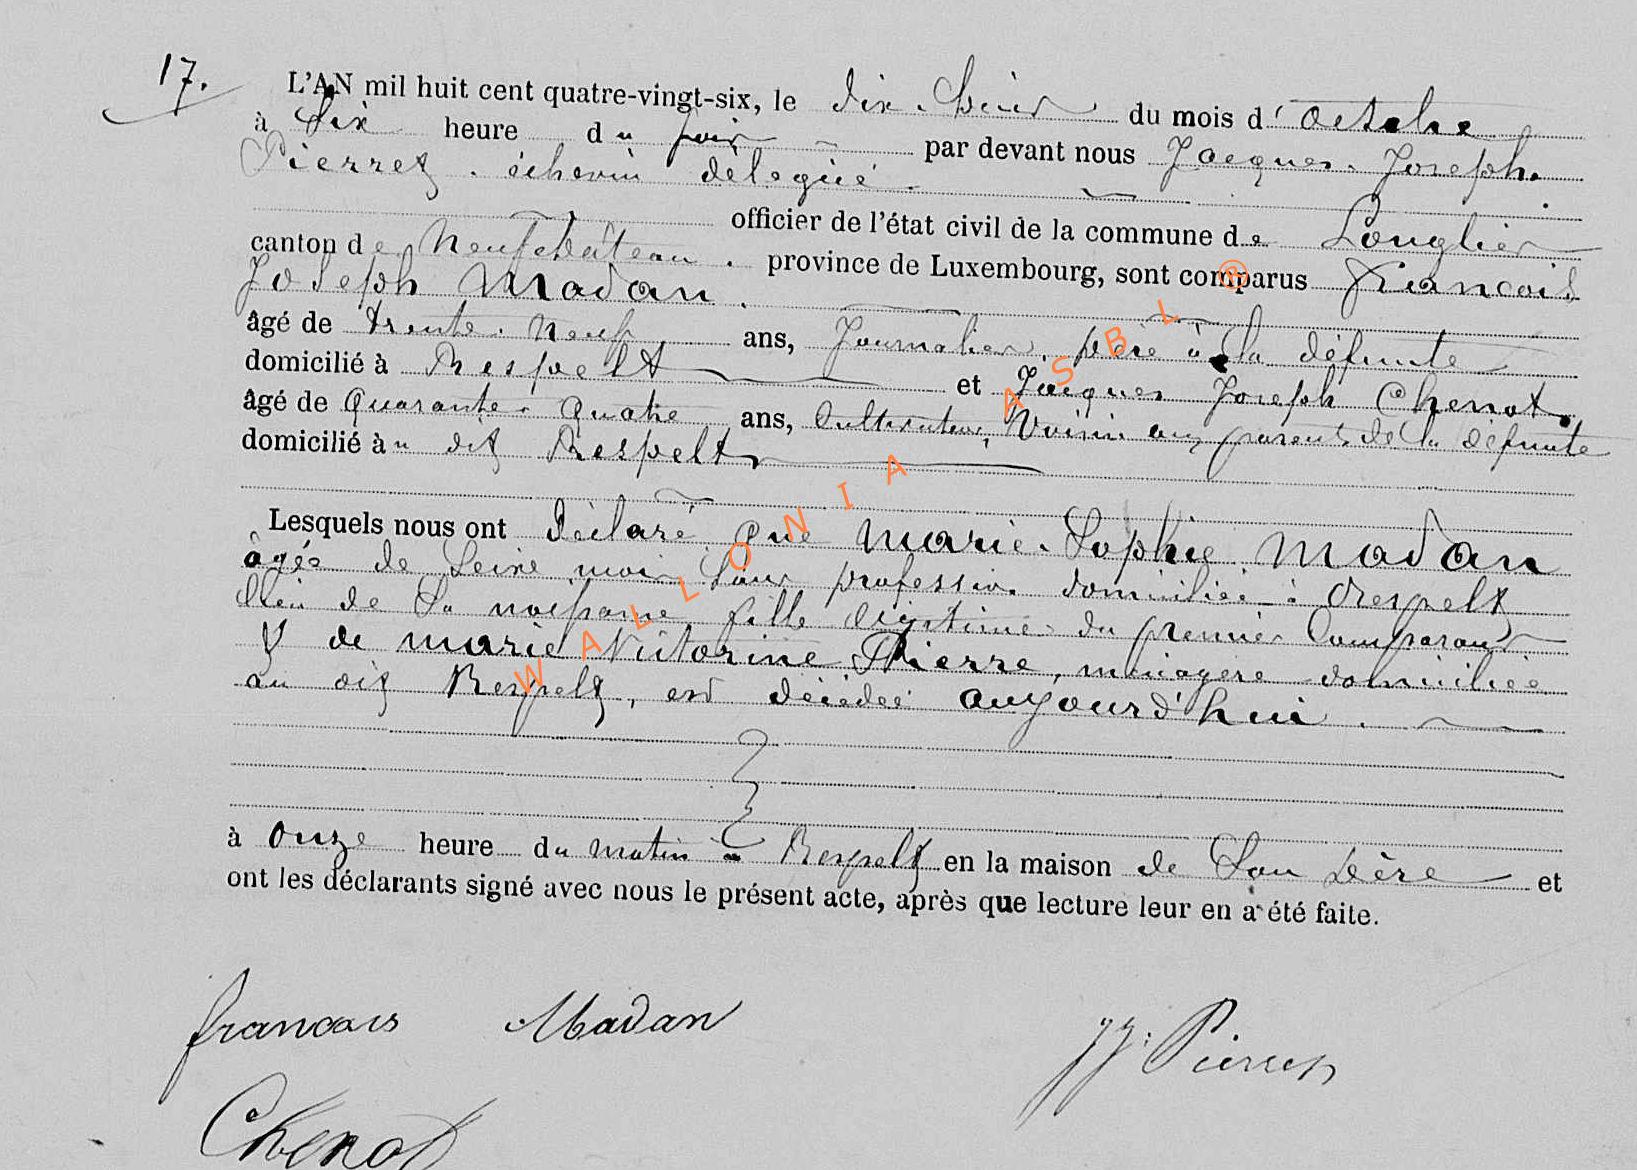 17.
L'AN mil huit cent quatre-vingt-six, le dix-huit du mois d'octobre
à Six heure du soir par devant nous Jacques-Joseph
Pierret, échevin délégué
officier de l'état civil de la commune de Longlier
canton de Neufchâteau, province de Luxembourg, sont comparus François
Joseph Madan
âgé de trente-neuf ans, Journalier, père à la défunte
domicilié à Respelt et Jacques Joseph Chenot,
âgé de Quarante-quatre ans, Cultivateur, Voisin aux parents de la défunte
domicilié àu dit Respelt,
Lesquels nous ont déclaré que Marie-Sophie Madan
âgée de Seize mois, sans profession domiciliée à Respelt
lieu de sa naissance fille légitime du premier Comparant
& de Marie Victorine Pierre, ménagère domiciliée
au dit Respelt, est décédée aujourd'hui.
à onze heure du matin à Respelt en la maison de Son père et
ont les déclarants signé avec nous le présent acte, après que lecture leur en a été faite.
francois Madan
JJ: Pierret
Chenot
WALLONIA ASBL ®